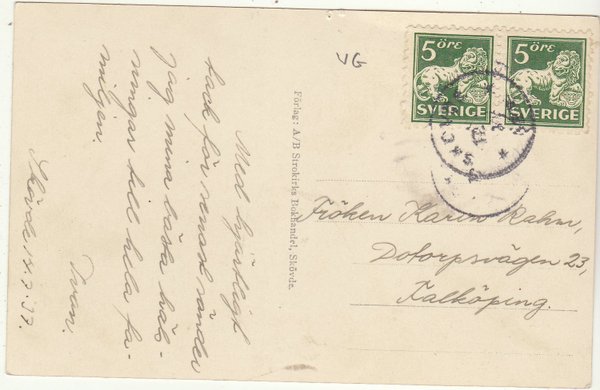 5 ÖRE
SVERIGE
5 ÖRE
SVERIGE
VG
Med hjärtligt
tack för senast sänder
jag mina bästa häls-
ningar till hela fa-
miljen.
Skövde 14.7.37.
Förlag: A/B Strokirks Bokhandel, Skövde.
Fröken Karin Rahm,
Dotorpsvägen 23,
Falköping.